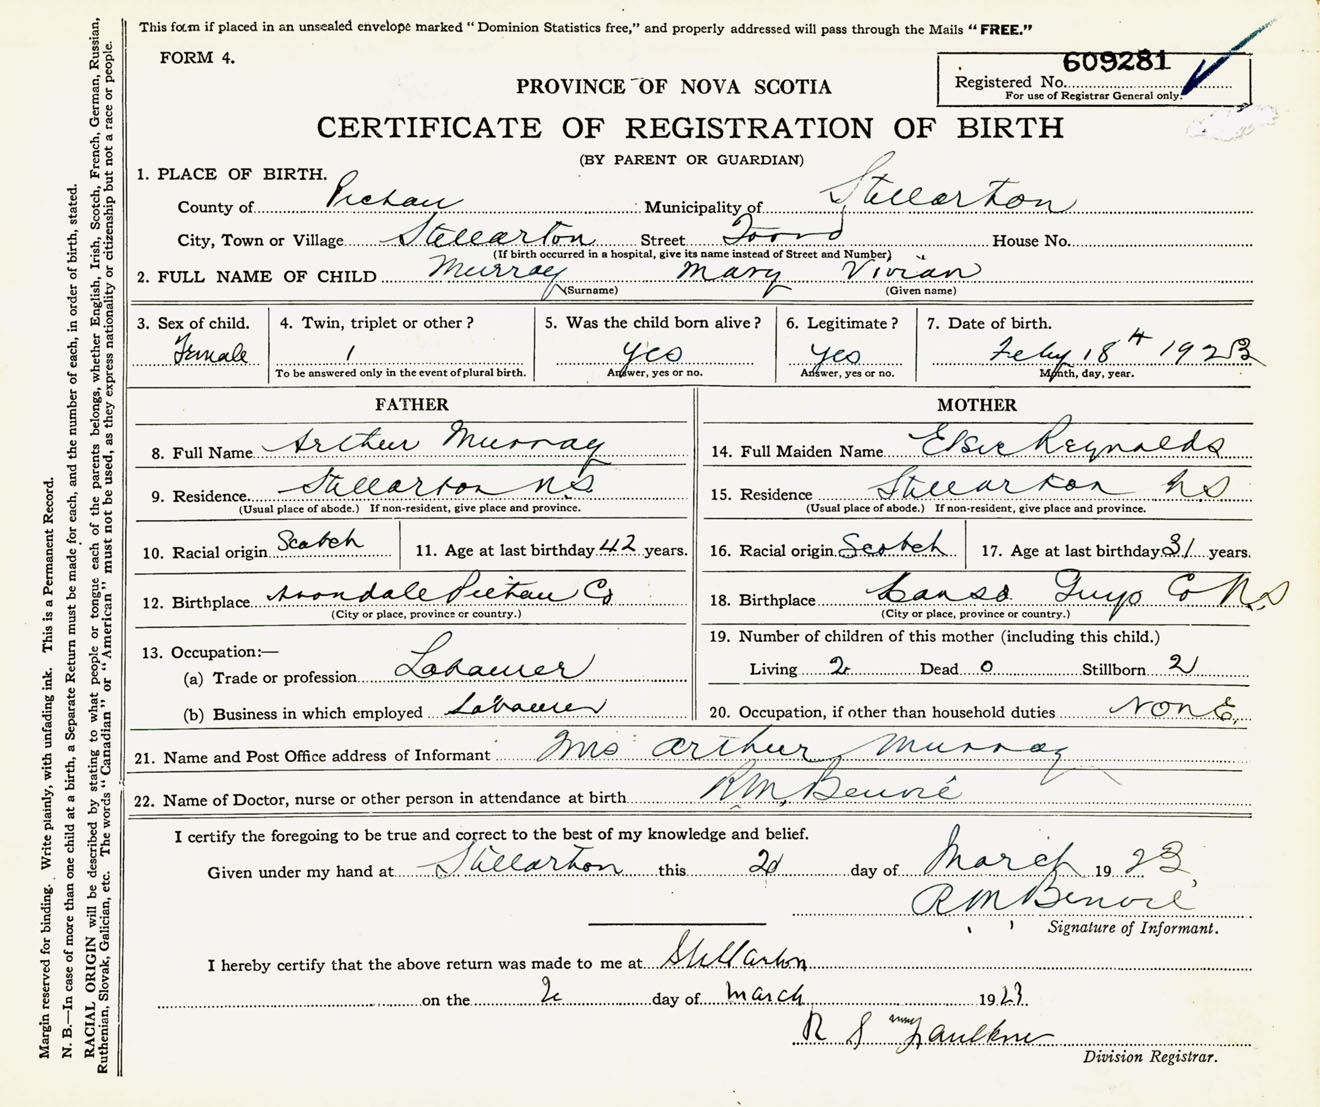 This form if placed in an unsealed envelope marked "Dominion Statistics free," and properly addressed will pass through the Mails "FREE."
FORM 4.
609281
Registered No.
For use of Registrar General only.
PROVINCE OF NOVA SCOTIA
CERTIFICATE OF REGISTRATION OF BIRTH
(BY PARENT OR GUARDIAN)
1. PLACE OF BIRTH.
County of Pictou Municipality of Stellarton
City, Town or Village Stellarton Street Foord House No.
(If birth occurred in a hospital, give its name instead of Street and Number)
2. FULL NAME OF CHILD Murray Mary Vivian
(Surname) (Given name)
3. Sex of child. 4. Twin, triplet or other? 5. Was the child born alive? 6. Legitimate? 7. Date of birth.
Female 1 yes yes Feby 18th 1923
To be answered only in the event of plural birth. Answer, yes or no. Answer, yes or no. Month, day, year.
FATHER MOTHER
8. Full Name Arthur Murray 14. Full Maiden Name Elsie Reynolds
9. Residence Stellarton N.S. 15. Residence Stellarton NS
(Usual place of abode.) If non-resident, give place and province. (Usual place of abode.) If non-resident, give place and province.
10. Racial origin Scotch 11. Age at last birthday 42 years. 16. Racial origin Scotch 17. Age at last birthday 31 years.
12. Birthplace Avondale Pictou Co 18. Birthplace Canso Guys Co N.S
(City or place, province or country.) (City or place, province or country.)
13. Occupation:— 19. Number of children of this mother (including this child.)
(a) Trade or profession Labourer Living 2 Dead 0 Stillborn 2
(b) Business in which employed Labourer 20. Occupation, if other than household duties NONE.
21. Name and Post Office address of Informant Mrs Arthur Murray
22. Name of Doctor, nurse or other person in attendance at birth R M. Benvie
I certify the foregoing to be true and correct to the best of my knowledge and belief.
Given under my hand at Stellarton this 2d day of March 1923
R M Benvie
Signature of Informant.
I hereby certify that the above return was made to me at Stellarton
on the 2 day of March 1923
R S Faulkner
Division Registrar.
Margin reserved for binding. Write plainly, with unfading ink. This is a Permanent Record.
N. B.—In case of more than one child at a birth, a Separate Return must be made for each, and the number of each, in order of birth, stated.
RACIAL ORIGIN will be described by stating to what people or tongue each of the parents belongs, whether English, Irish, Scotch, French, German, Russian,
Ruthenian, Slovak, Galician, etc. The words "Canadian" or "American" must not be used, as they express nationality or citizenship but not a race or people.